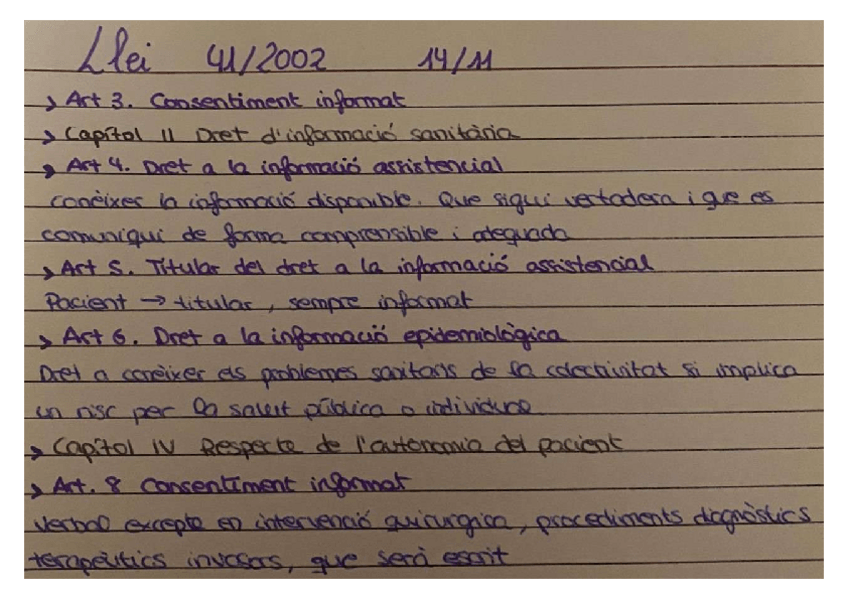 Llei 41/2002 14/11
> Art 3. Consentiment informat
> Capítol II Dret d'informació sanitària
> Art 4. Dret a la informació assistencial
conèixer la informació disponible. Que sigui vertadera i que es
comuniqui de forma comprensible i adequada
> Art 5. Titular del dret a la informació assistencial
Pacient → titular, sempre informat
> Art 6. Dret a la informació epidemiològica
Dret a conèixer els problemes sanitaris de la colectivitat si implica
un risc per la salut pública o individual
> Capítol IV Respecte de l'autonomia del pacient
> Art. 8 Consentiment informat
Verbal excepte en intervenció quirurgica, procediments diagnòstics
terapèutics invasors, que serà escrit